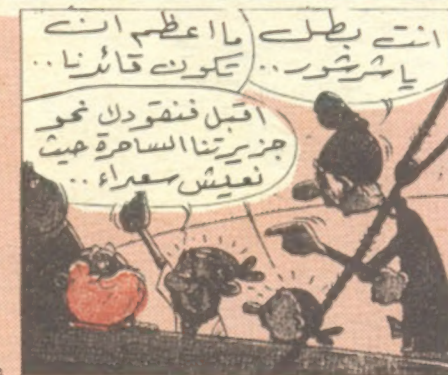 انت بطل
يا شرشور..
ما اعظم ان
تكون قائدنا..
اقبل فنقودك نحو
جزيرتنا الساحرة حيث
نعيش سعداء..